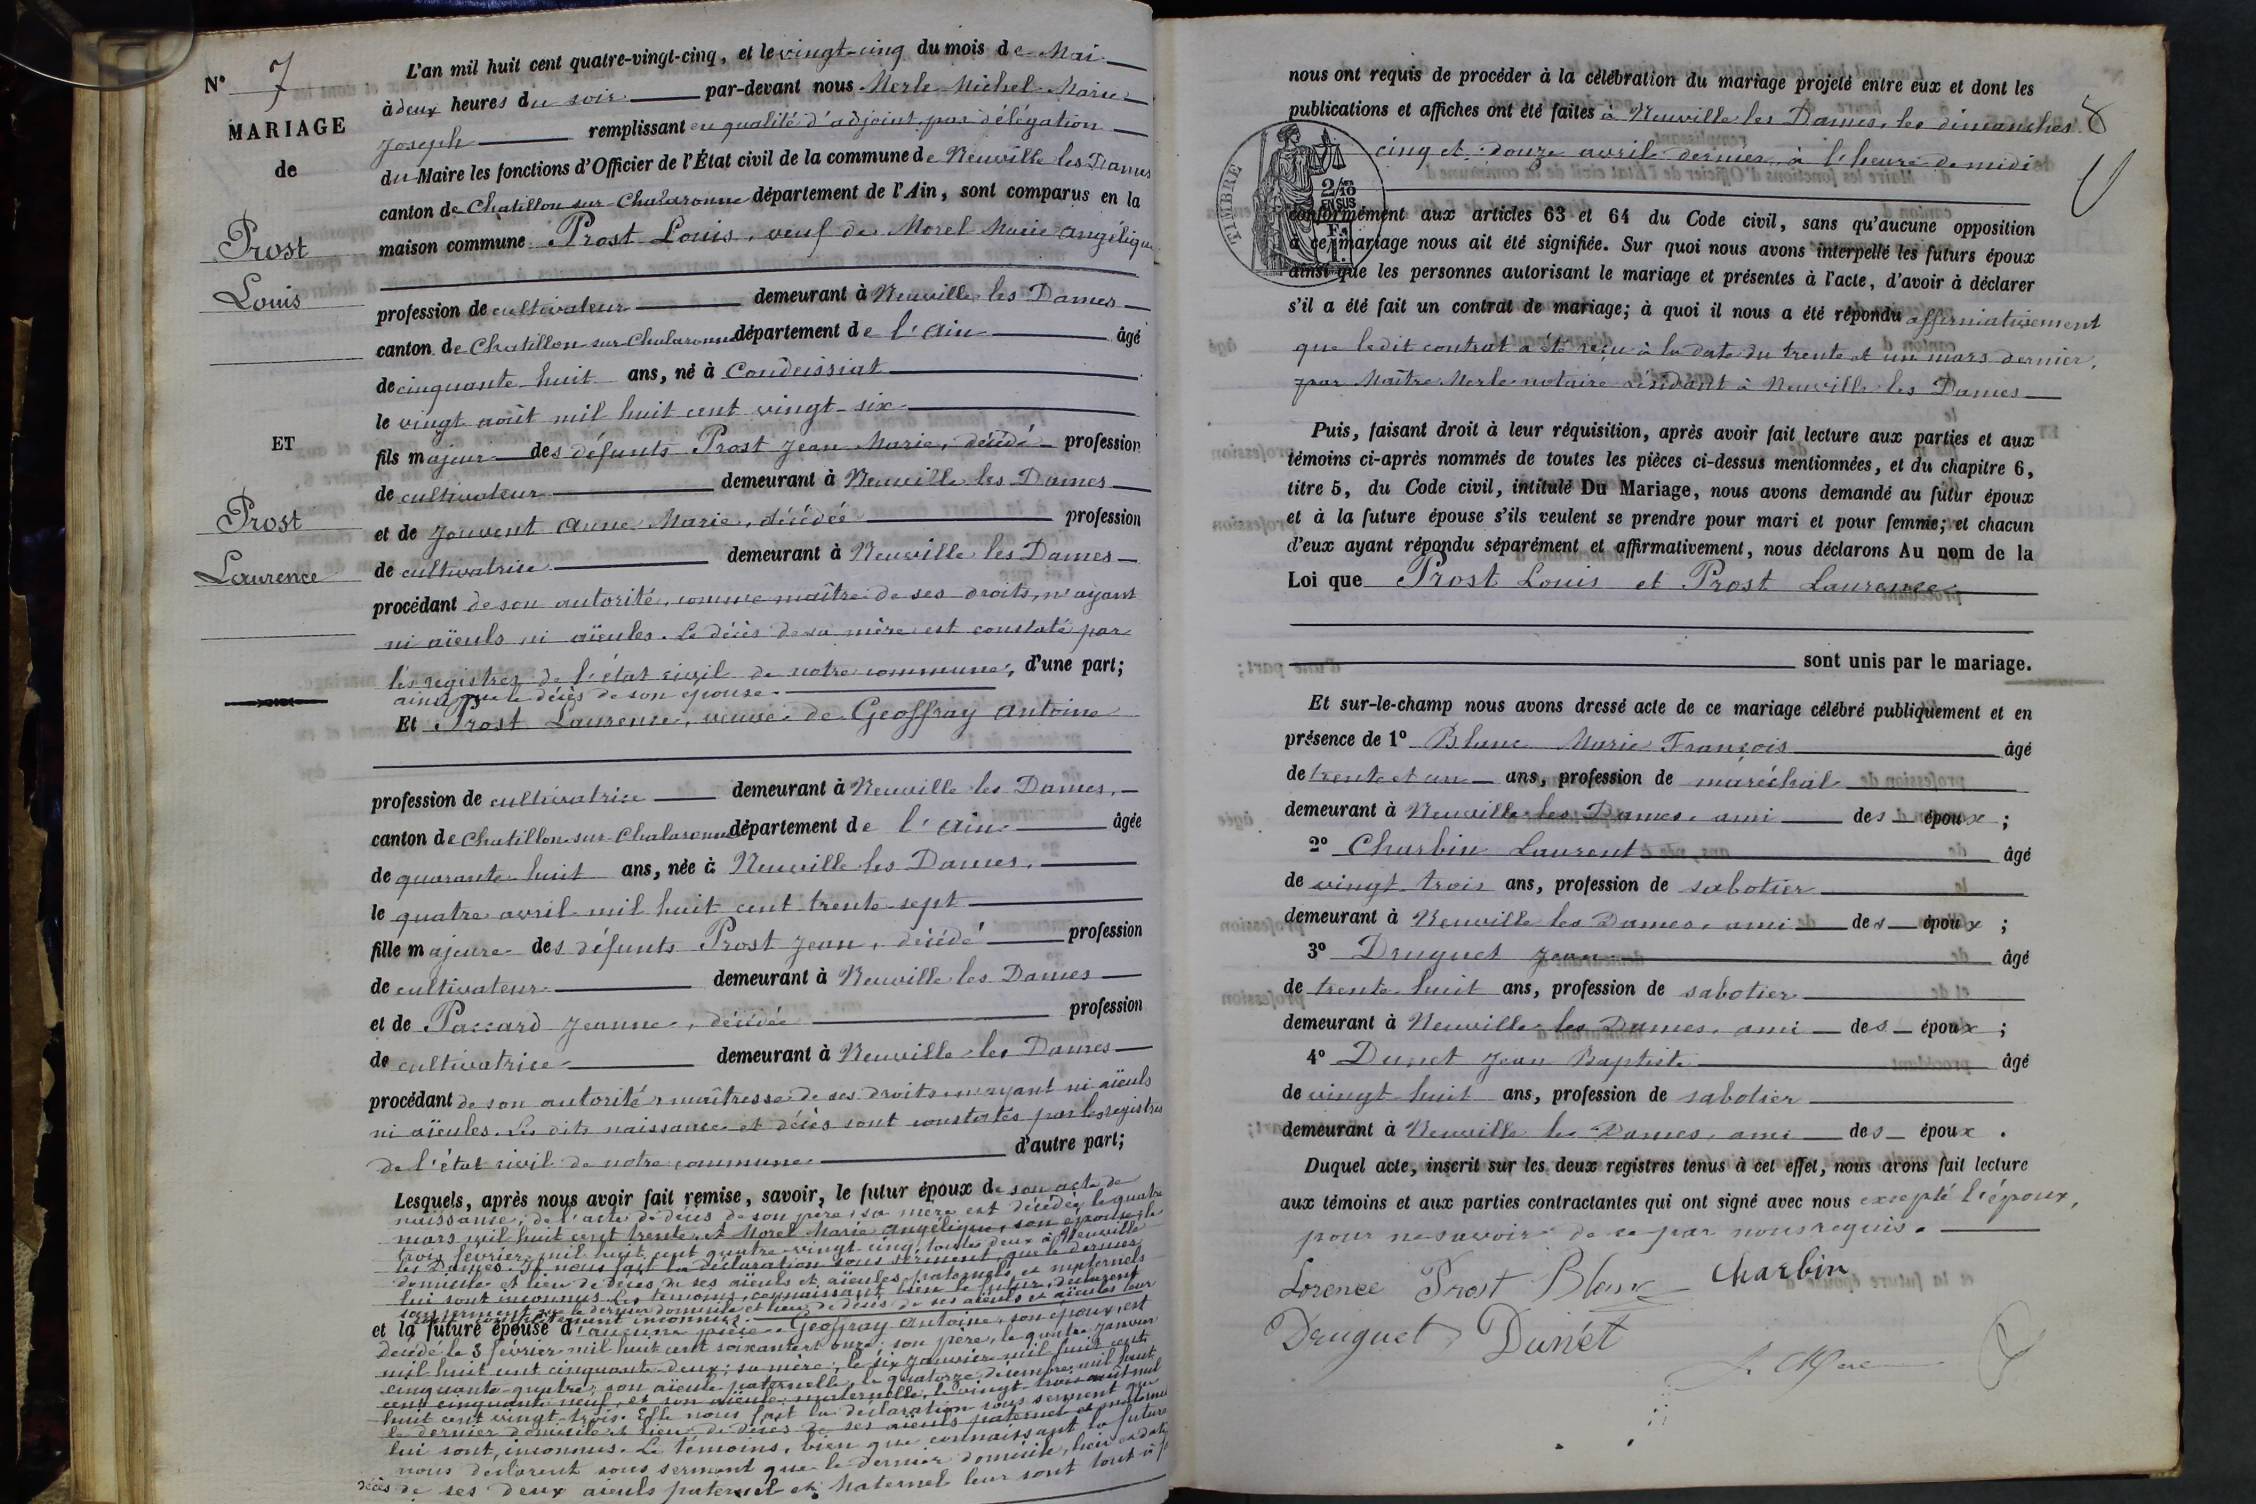 N° 7
MARIAGE
de
Prost
Louis
ET
Prost
Laurence
L'an mil huit cent quatre-vingt-cinq, et le vingt-cinq du mois de Mai
à deux heures du soir par-devant nous Merle Michel Marie
Joseph remplissant en qualité d'adjoint par délégation
du Maire les fonctions d'Officier de l'État civil de la commune de Neuville les Dames
canton de Chatillon sur Chalaronne département de l'Ain, sont comparus en la
maison commune Prost Louis, veuf de Morel Marie Angélique
profession de cultivateur demeurant à Neuville les Dames
canton de Chatillon sur Chalaronne département de l'Ain âgé
de cinquante huit ans, né à Condeissiat
le vingt août mil huit cent vingt-six
fils majeur des défunts Prost Jean Marie, décédé profession
de cultivateur demeurant à Neuville les Dames
et de Jouvent Anne Marie, décédée profession
de cultivatrice demeurant à Neuville les Dames
procédant de son autorité, comme maître de ses droits, n'ayant
ni aïeuls ni aïeules. Le décès de sa mère est constaté par
les registres de l'état civil de notre commune, d'une part;
ainsi que le décès de son épouse.
Et Prost Laurence, veuve de Geoffray Antoine
profession de cultivatrice demeurant à Neuville les Dames,
canton de Chatillon sur Chalaronne département de l'Ain âgée
de quarante huit ans, née à Neuville les Dames,
le quatre avril mil huit cent trente-sept
fille majeure des défunts Prost Jean, décédé profession
de cultivateur demeurant à Neuville les Dames
et de Paccard Jeanne, décédée profession
de cultivatrice demeurant à Neuville les Dames
procédant de son autorité, maîtresse de ses droits n'ayant ni aïeuls
ni aïeules. Les dits naissance et décès sont constatés par les registres
de l'état civil de notre commune d'autre part;
Lesquels, après nous avoir fait remise, savoir, le futur époux de son acte de
naissance, de l'acte de décès de son père, sa mère est décédée le quatre
mars mil huit cent trente, et Morel Marie Angélique, son épouse, le
trois février mil huit cent quatre-vingt-cinq, toutes deux à Neuville
les Dames. Il nous fait la déclaration sous serment, que le dernier
domicile et lieu de décès de ses aïeuls et aïeules paternels et maternels
lui sont inconnus. Les témoins, connaissant bien le futur, déclarent
sous serment que le dernier domicile et lieu de décès de ses aïeuls et aïeules leur
sont inconnus.
et la future épouse d'aucune pièce. Geoffray Antoine, son époux, est
décédé le 3 février mil huit cent soixante et onze; son père, le quatre janvier
mil huit cent cinquante-deux; sa mère, le six janvier mil huit cent
cinquante-quatre; son aïeule paternelle, le quatorze décembre mil huit
cent cinquante neuf, et son aïeule maternelle, le vingt-trois août mil
huit cent vingt-trois. Elle nous fait la déclaration sous serment que
le dernier domicile et lieu de décès de ses aïeuls paternel et maternel
lui sont inconnus. Le témoins, bien que connaissant la future
nous déclarent sous serment que le dernier domicile, lieu et date
décès de ses deux aïeuls paternel et maternel leur sont tout à
nous ont requis de procéder à la célébration du mariage projeté entre eux et dont les
publications et affiches ont été faites à Neuville les Dames, les dimanches
cinq et douze avril dernier, à l'heure de midi
TIMBRE
2/10 EN SUS
conformément aux articles 63 et 64 du Code civil, sans qu'aucune opposition
à ce mariage nous ait été signifiée. Sur quoi nous avons interpellé les futurs époux
ainsi que les personnes autorisant le mariage et présentes à l'acte, d'avoir à déclarer
s'il a été fait un contrat de mariage; à quoi il nous a été répondu affirmativement
que ledit contrat a été reçu à la date du trente et un mars dernier,
par Maître Merle notaire résidant à Neuville les Dames
Puis, faisant droit à leur réquisition, après avoir fait lecture aux parties et aux
témoins ci-après nommés de toutes les pièces ci-dessus mentionnées, et du chapitre 6,
titre 5, du Code civil, intitulé Du Mariage, nous avons demandé au futur époux
et à la future épouse s'ils veulent se prendre pour mari et pour femme; et chacun
d'eux ayant répondu séparément et affirmativement, nous déclarons Au nom de la
Loi que Prost Louis et Prost Laurence
sont unis par le mariage.
Et sur-le-champ nous avons dressé acte de ce mariage célébré publiquement et en
présence de 1° Blanc Marie François âgé
de trente et un ans, profession de maréchal
demeurant à Neuville les Dames, ami des époux ;
2° Charbin Laurent âgé
de vingt-trois ans, profession de sabotier
demeurant à Neuville les Dames, ami des époux ;
3° Druguet Jean âgé
de trente huit ans, profession de sabotier
demeurant à Neuville les Dames, ami des époux ;
4° Dunet Jean Baptiste âgé
de vingt-huit ans, profession de sabotier
demeurant à Neuville les Dames, ami des époux .
Duquel acte, inscrit sur les deux registres tenus à cet effet, nous avons fait lecture
aux témoins et aux parties contractantes qui ont signé avec nous excepté l'époux,
pour ne savoir de ce par nous requis.
Lorence Prost Blanc Charbin
Druguet Dunet